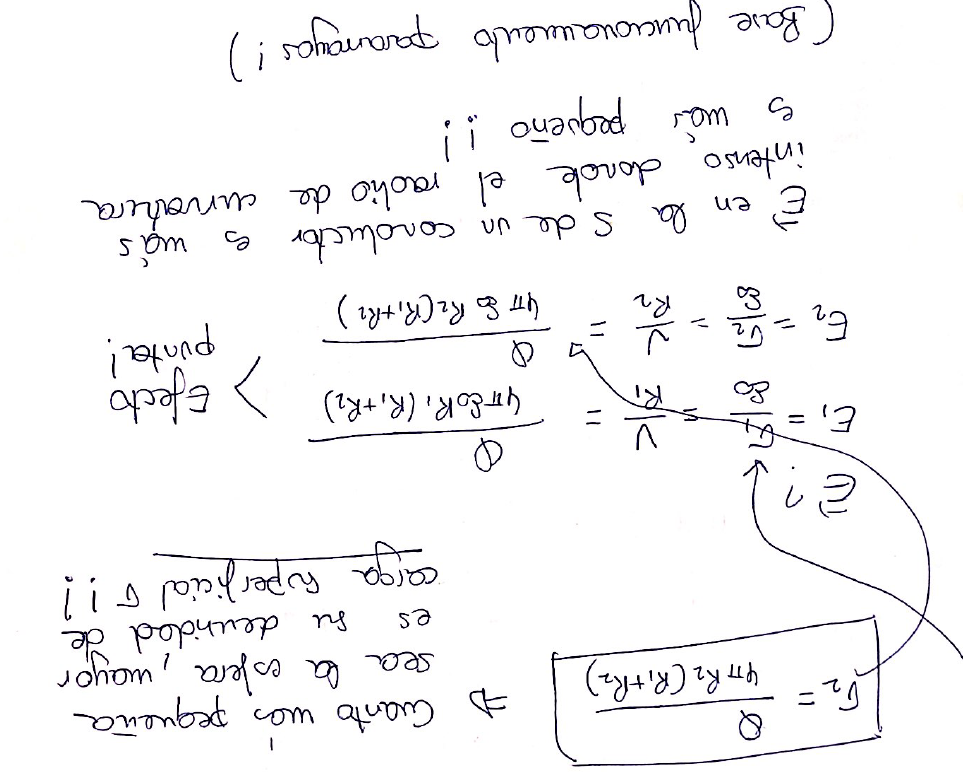 σ₂ = Q / 4π R₂ (R₁+R₂) ⇒ Cuanto más pequeña
sea la esfera, mayor
es su densidad de
carga superficial σ !!
E⃗ ?
E₁ = σ₁/ε₀ = V/R₁ = Q / 4π ε₀ R₁ (R₁+R₂)
E₂ = σ₂/ε₀ = V/R₂ = Q / 4π ε₀ R₂ (R₁+R₂)
> Efecto
punta!
E⃗ en la S de un conductor es más
intenso donde el radio de curvatura
es más pequeño !!
(Base funcionamiento pararrayos!)